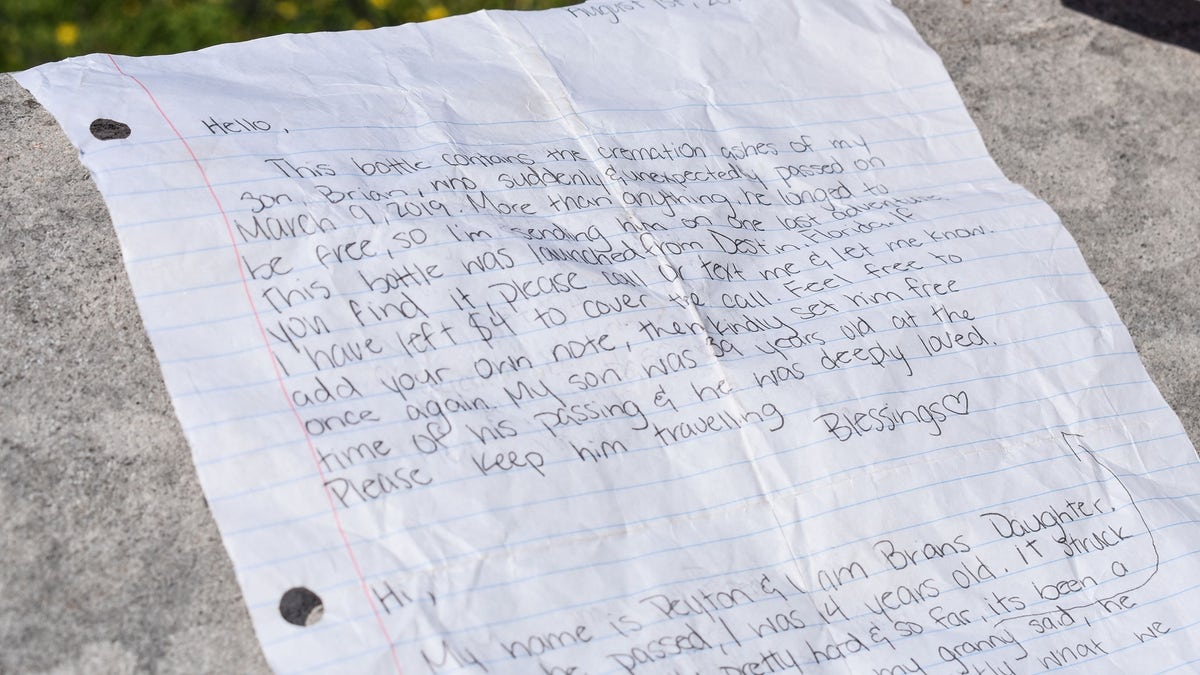 August 1st, 20
Hello,
This bottle contains the cremation ashes of my
son, Brian, who suddenly & unexpectedly passed on
March 9, 2019. More than anything he longed to
be free, so I'm sending him on one last adventure.
This bottle was launched from Destin, Florida. If
you find it, please call or text me & let me know.
I have left $4 to cover the call. Feel free to
add your own note, then kindly set him free
once again. My son was 39 years old at the
time of his passing & he was deeply loved.
Please keep him travelling
Blessings♡
Hi,
My name is Peyton & I am Brians Daughter.
he passed, I was 14 years old. it struck
pretty hard & so far, its been a
my granny said, he
what we